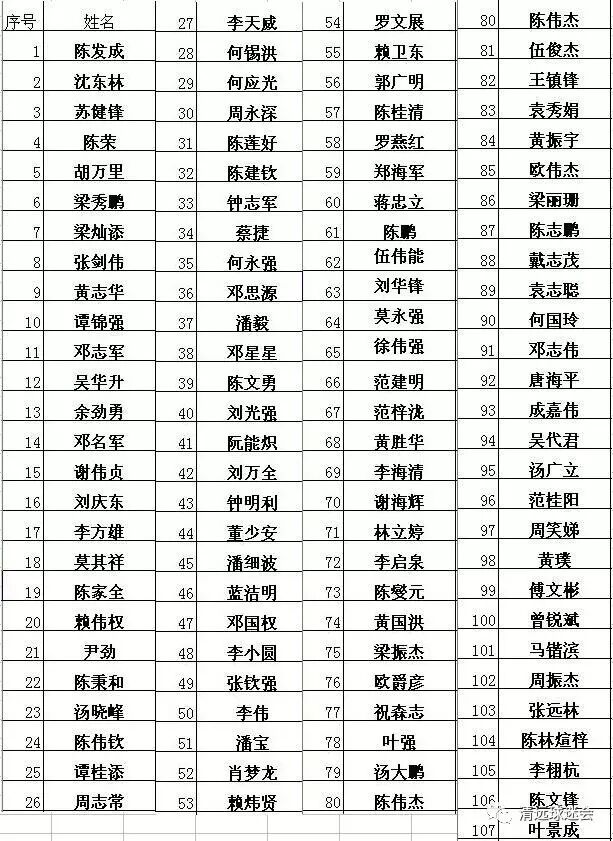 序号 姓名
1 陈发成
2 沈东林
3 苏健锋
4 陈荣
5 胡万里
6 梁秀鹏
7 梁灿添
8 张剑伟
9 黄志华
10 谭锦强
11 邓志军
12 吴华升
13 余劲勇
14 邓名军
15 谢伟贞
16 刘庆东
17 李方雄
18 莫其祥
19 陈家全
20 赖伟权
21 尹劲
22 陈秉和
23 汤晓峰
24 陈伟钦
25 谭桂添
26 周志常
27 李天威
28 何锡洪
29 何应光
30 周永深
31 陈莲好
32 陈建钦
33 钟志军
34 蔡捷
35 何永强
36 邓思源
37 潘毅
38 邓星星
39 陈文勇
40 刘光强
41 阮能炽
42 刘万全
43 钟明利
44 董少安
45 潘细波
46 蓝洁明
47 邓国权
48 李小圆
49 张钦强
50 李伟
51 潘宝
52 肖梦龙
53 赖炜贤
54 罗文展
55 赖卫东
56 郭广明
57 陈桂清
58 罗燕红
59 郑海军
60 蒋忠立
61 陈鹏
62 伍伟能
63 刘华锋
64 莫永强
65 徐伟强
66 范建明
67 范梓泷
68 黄胜华
69 李海清
70 谢海辉
71 林立婷
72 李启泉
73 陈燮元
74 黄国洪
75 梁振杰
76 欧爵彦
77 祝森志
78 叶强
79 汤大鹏
80 陈伟杰
80 陈伟杰
81 伍俊杰
82 王镇锋
83 袁秀娟
84 黄振宇
85 欧伟杰
86 梁丽珊
87 陈志鹏
88 戴志茂
89 袁志聪
90 何国玲
91 邓志伟
92 唐海平
93 成嘉伟
94 吴代君
95 汤广立
96 范桂阳
97 周笑娣
98 黄璞
99 傅文彬
100 曾锐斌
101 马锴滨
102 周振杰
103 张远林
104 陈林煊梓
105 李栩杭
106 陈文锋
107 叶景成
清远球迷会